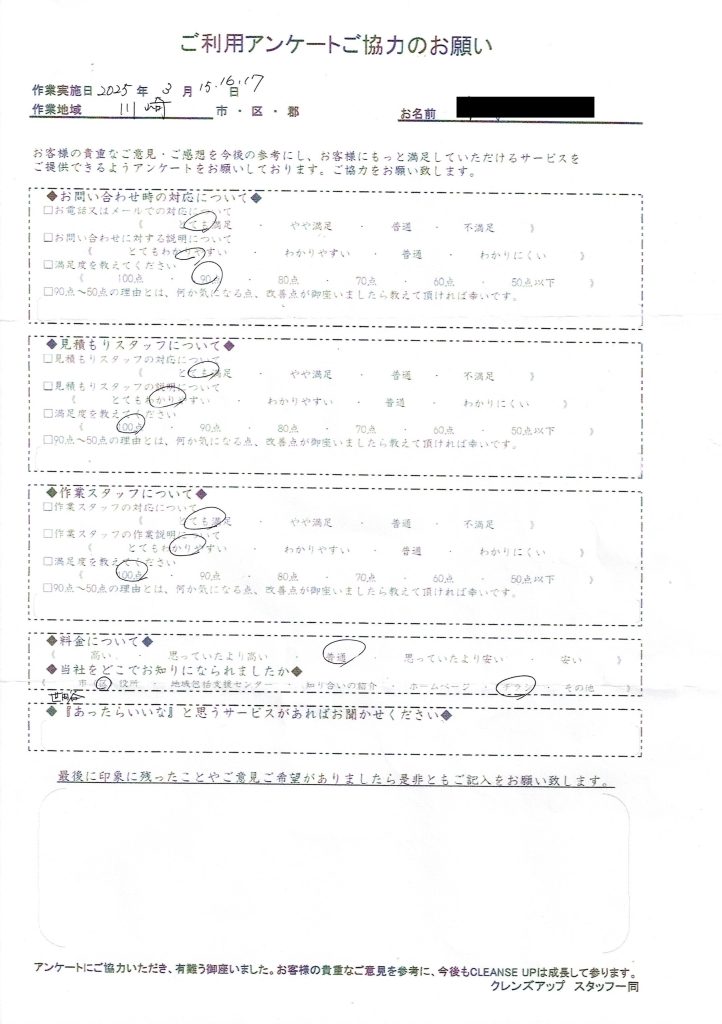 ご利用アンケートご協力のお願い
作業実施日 2025 年 3 月 15.16.17 日
作業地域 川崎 市・区・郡 お名前
お客様の貴重なご意見・ご感想を今後の参考にし、お客様にもっと満足していただけるサービスを
ご提供できるようアンケートをお願いしております。ご協力をお願い致します。
◆お問い合わせ時の対応について◆
□お電話又はメールでの対応について
《 とても満足 ・ やや満足 ・ 普通 ・ 不満足 》
□お問い合わせに対する説明について
《 とてもわかりやすい ・ わかりやすい ・ 普通 ・ わかりにくい 》
□満足度を教えてください
《 100点 ・ 90点 ・ 80点 ・ 70点 ・ 60点 ・ 50点以下 》
□90点～50点の理由とは、何か気になる点、改善点が御座いましたら教えて頂ければ幸いです。
◆見積もりスタッフについて◆
□見積もりスタッフの対応について
《 とても満足 ・ やや満足 ・ 普通 ・ 不満足 》
□見積もりスタッフの説明について
《 とてもわかりやすい ・ わかりやすい ・ 普通 ・ わかりにくい 》
□満足度を教えてください
《 100点 ・ 90点 ・ 80点 ・ 70点 ・ 60点 ・ 50点以下 》
□90点～50点の理由とは、何か気になる点、改善点が御座いましたら教えて頂ければ幸いです。
◆作業スタッフについて◆
□作業スタッフの対応について
《 とても満足 ・ やや満足 ・ 普通 ・ 不満足 》
□作業スタッフの作業説明について
《 とてもわかりやすい ・ わかりやすい ・ 普通 ・ わかりにくい 》
□満足度を教えてください
《 100点 ・ 90点 ・ 80点 ・ 70点 ・ 60点 ・ 50点以下 》
□90点～50点の理由とは、何か気になる点、改善点が御座いましたら教えて頂ければ幸いです。
◆料金について◆
《 高い ・ 思っていたより高い ・ 普通 ・ 思っていたより安い ・ 安い 》
◆当社をどこでお知りになられましたか◆
《 市・区役所 ・ 地域包括支援センター ・ 知り合いの紹介 ・ ホームページ ・ チラシ ・ その他 》
世田谷
◆『あったらいいな』と思うサービスがあればお聞かせください◆
最後に印象に残ったことやご意見ご希望がありましたら是非ともご記入をお願い致します。
アンケートにご協力いただき、有難う御座いました。お客様の貴重なご意見を参考に、今後もCLEANSE UPは成長して参ります。
クレンズアップ スタッフ一同